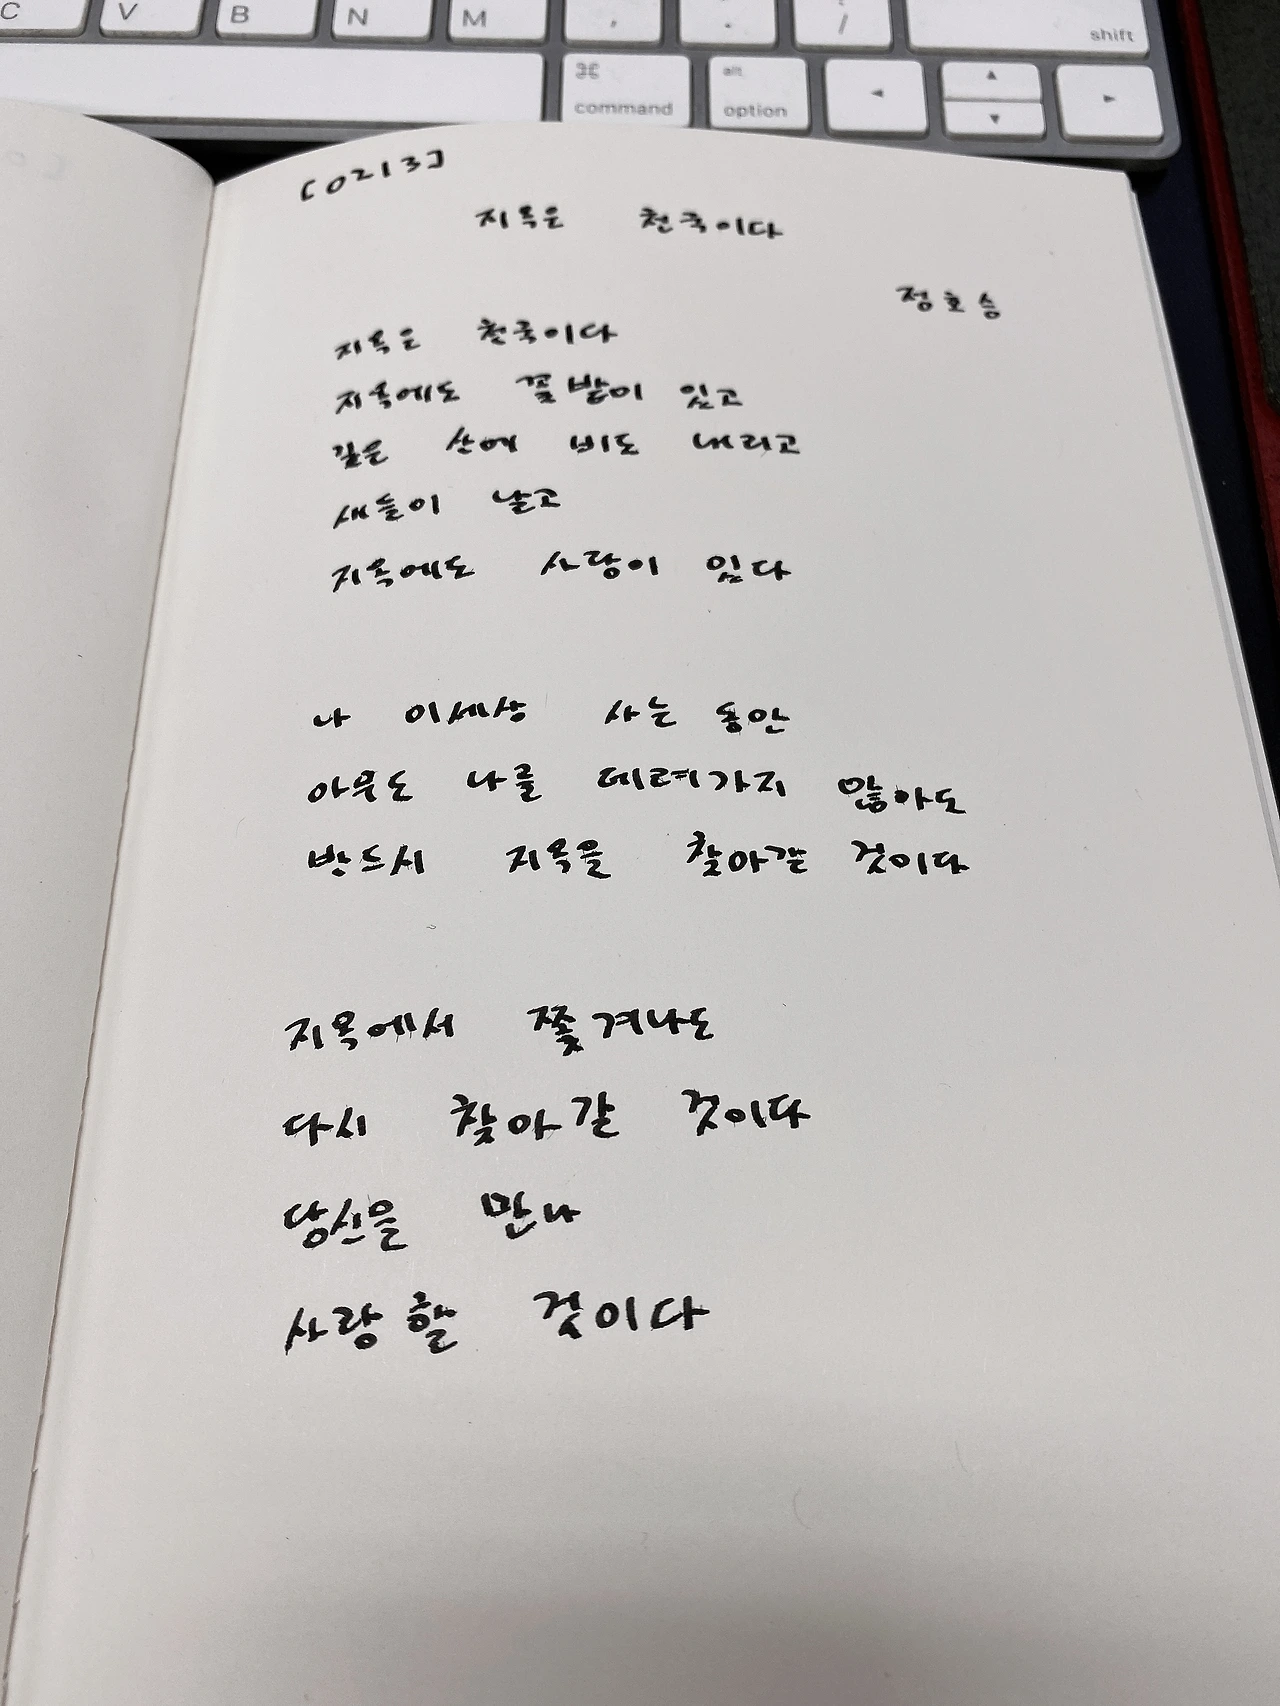 C V B N M , . / shift
⌘ command alt option ◄ ▲ ▼ ►
[0213]
지옥은 천국이다
정호승
지옥은 천국이다
지옥에도 꽃밭이 있고
깊은 산에 비도 내리고
새들이 날고
지옥에도 사랑이 있다
나 이세상 사는 동안
아무도 나를 데려가지 않아도
반드시 지옥을 찾아갈 것이다
지옥에서 쫓겨나도
다시 찾아갈 것이다
당신을 만나
사랑할 것이다